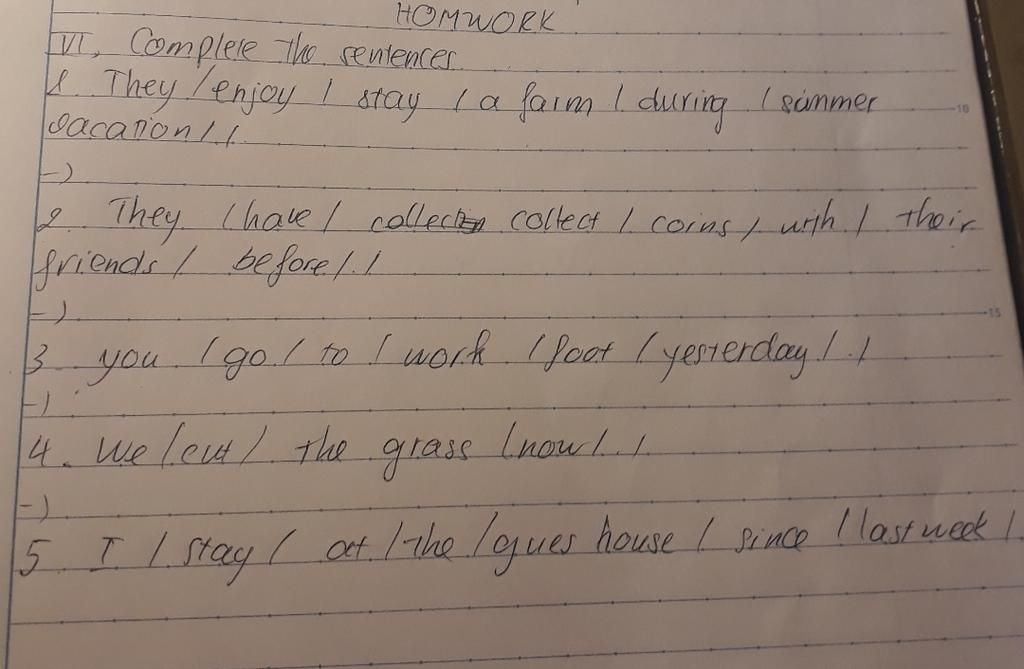 HOMWORK
VI, Complete the sentences
1. They / enjoy / stay / a farm / during / summer
vacation / /.
-)
2. They / have / collect / coins / with / their
friends / before / . /
-)
3 you / go / to / work / foot / yesterday / . /
-)
4. We / cut / the grass / now / . /
-)
5 I / stay / at / the / gues house / since / last week / .
10
15